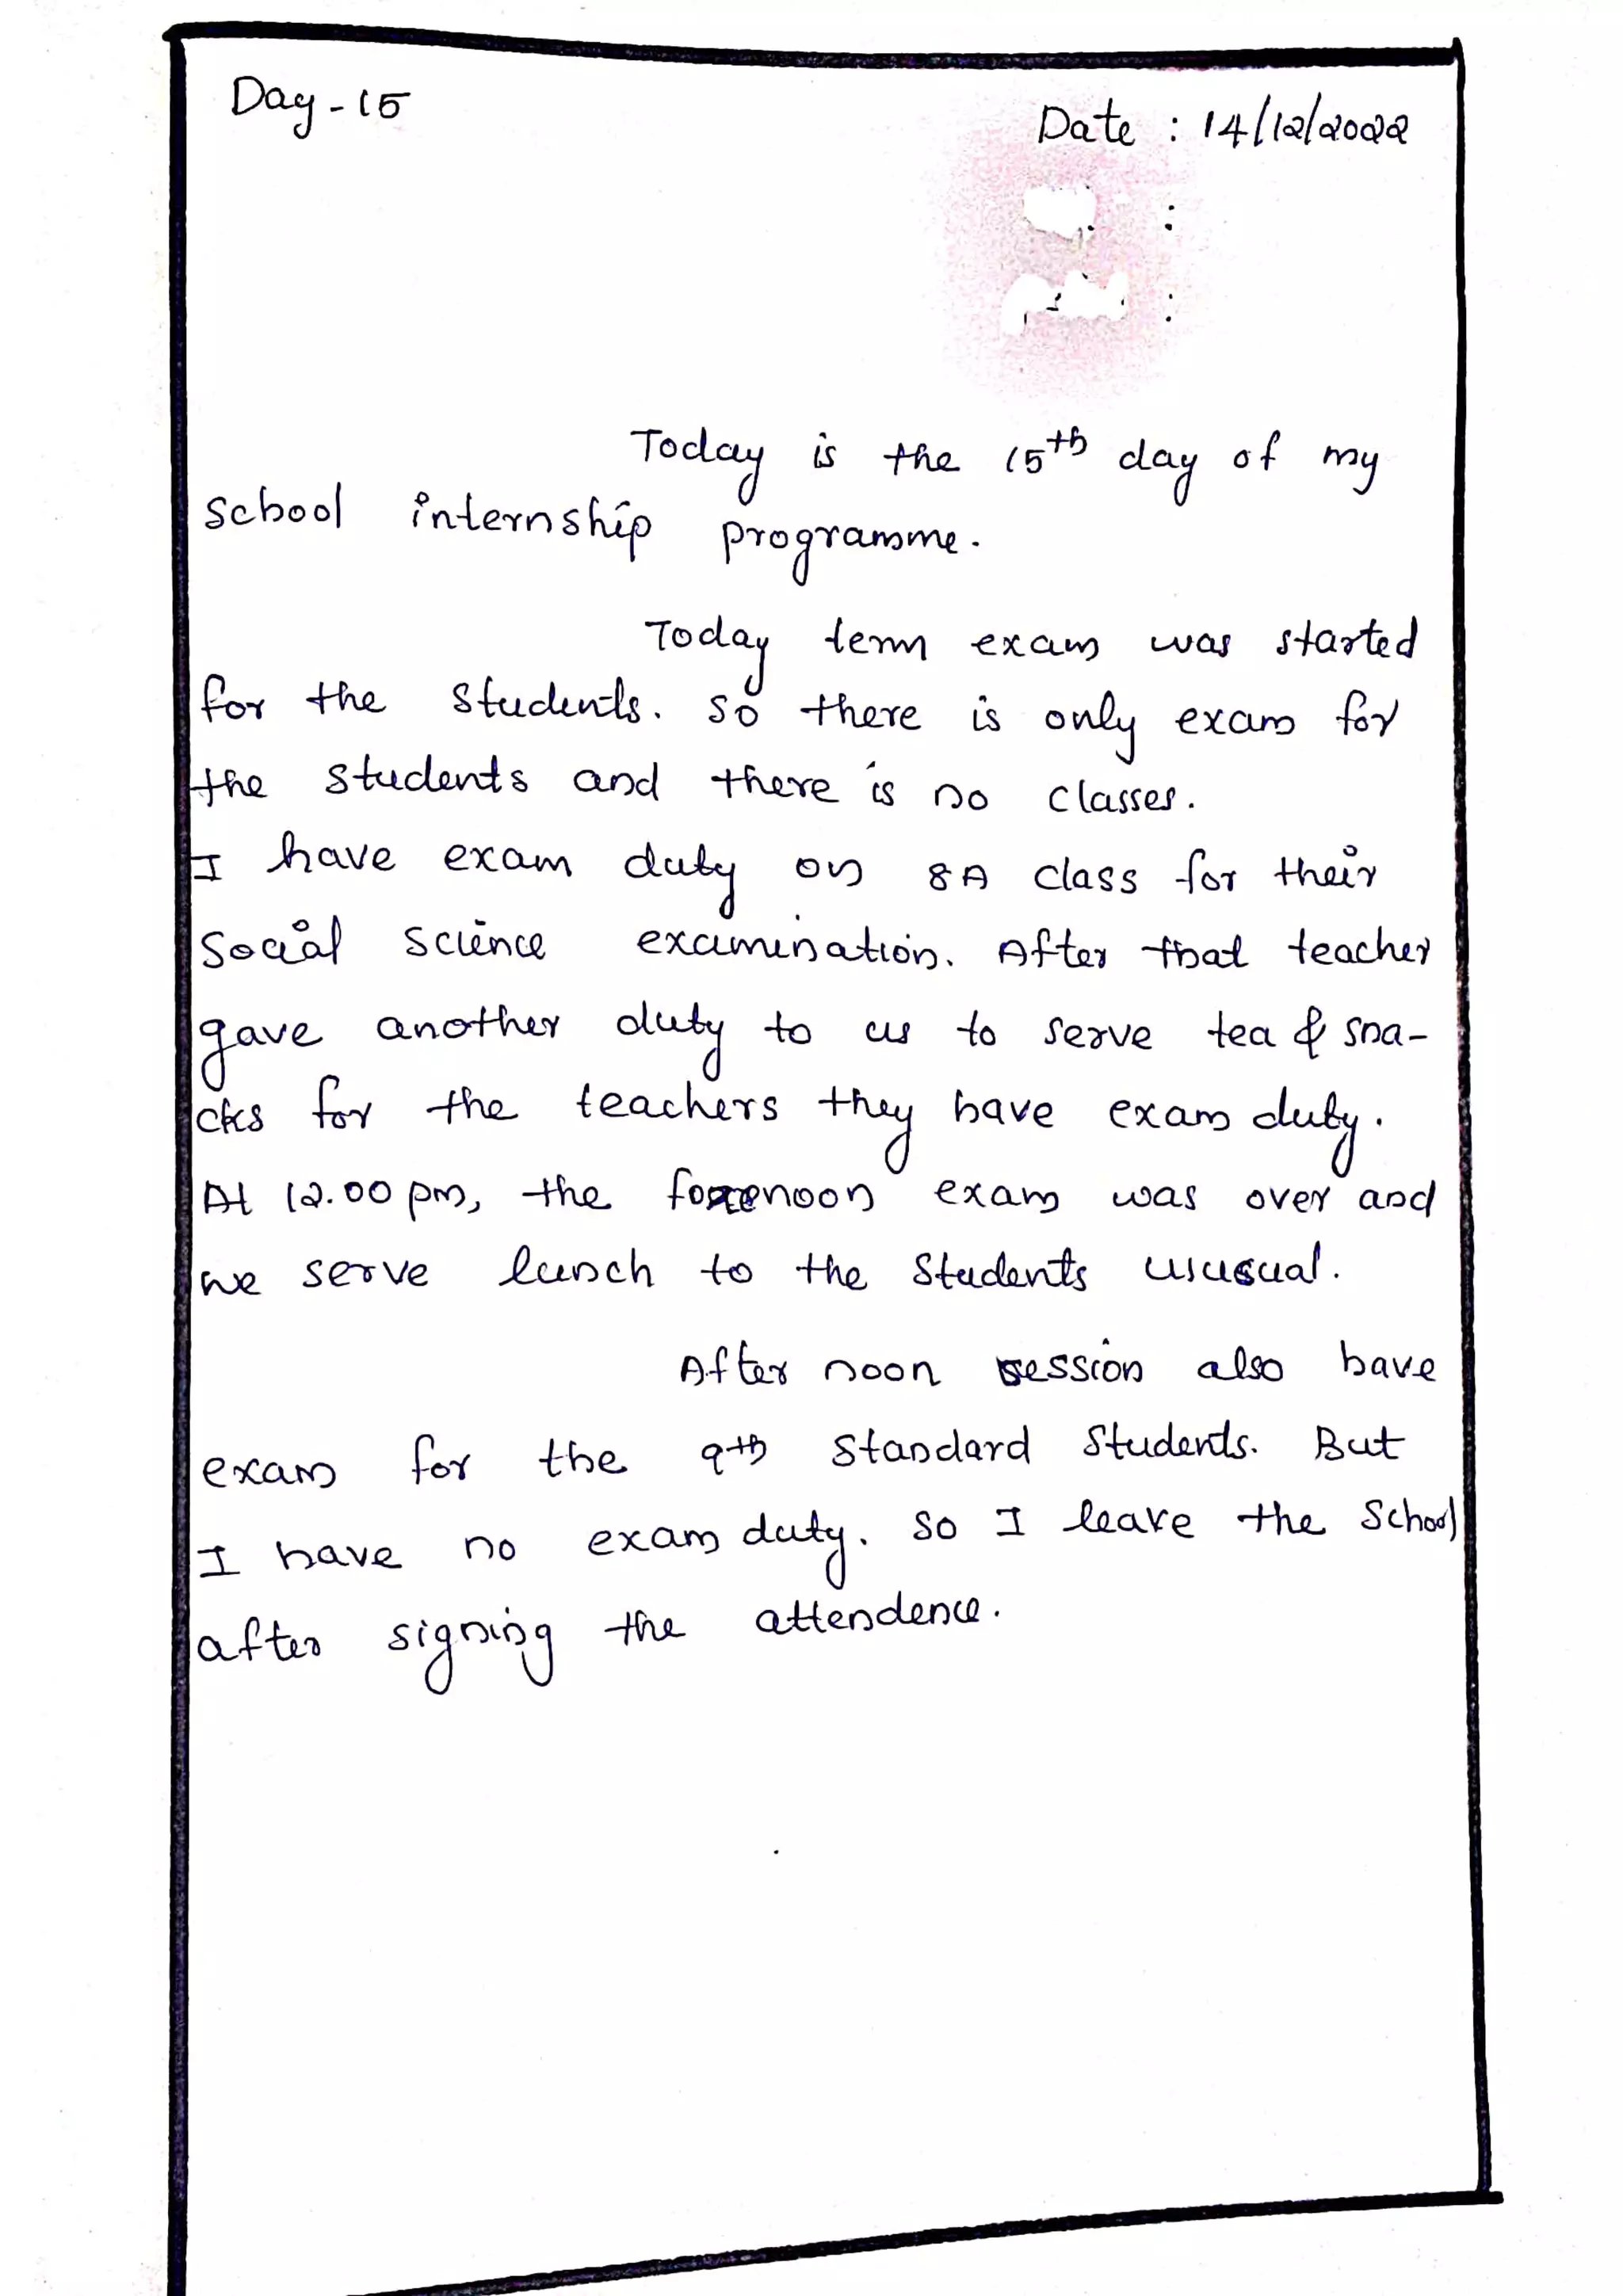 Day - 15
Date : 14/12/2022
:
:
Today is the 15th day of my
school internship programme.
Today term exam was started
for the students. so there is only exam for
the students and there is no classes.
I have exam duty on 8A class for their
Social Science examination. After that teacher
gave another duty to us to serve tea & sna-
cks for the teachers they have exam duty.
At 12.00 pm, the forenoon exam was over and
we serve lunch to the students ususual.
After noon session also have
exam for the 9th standard students. But
I have no exam duty. so I leave the school
after signing the attendence.